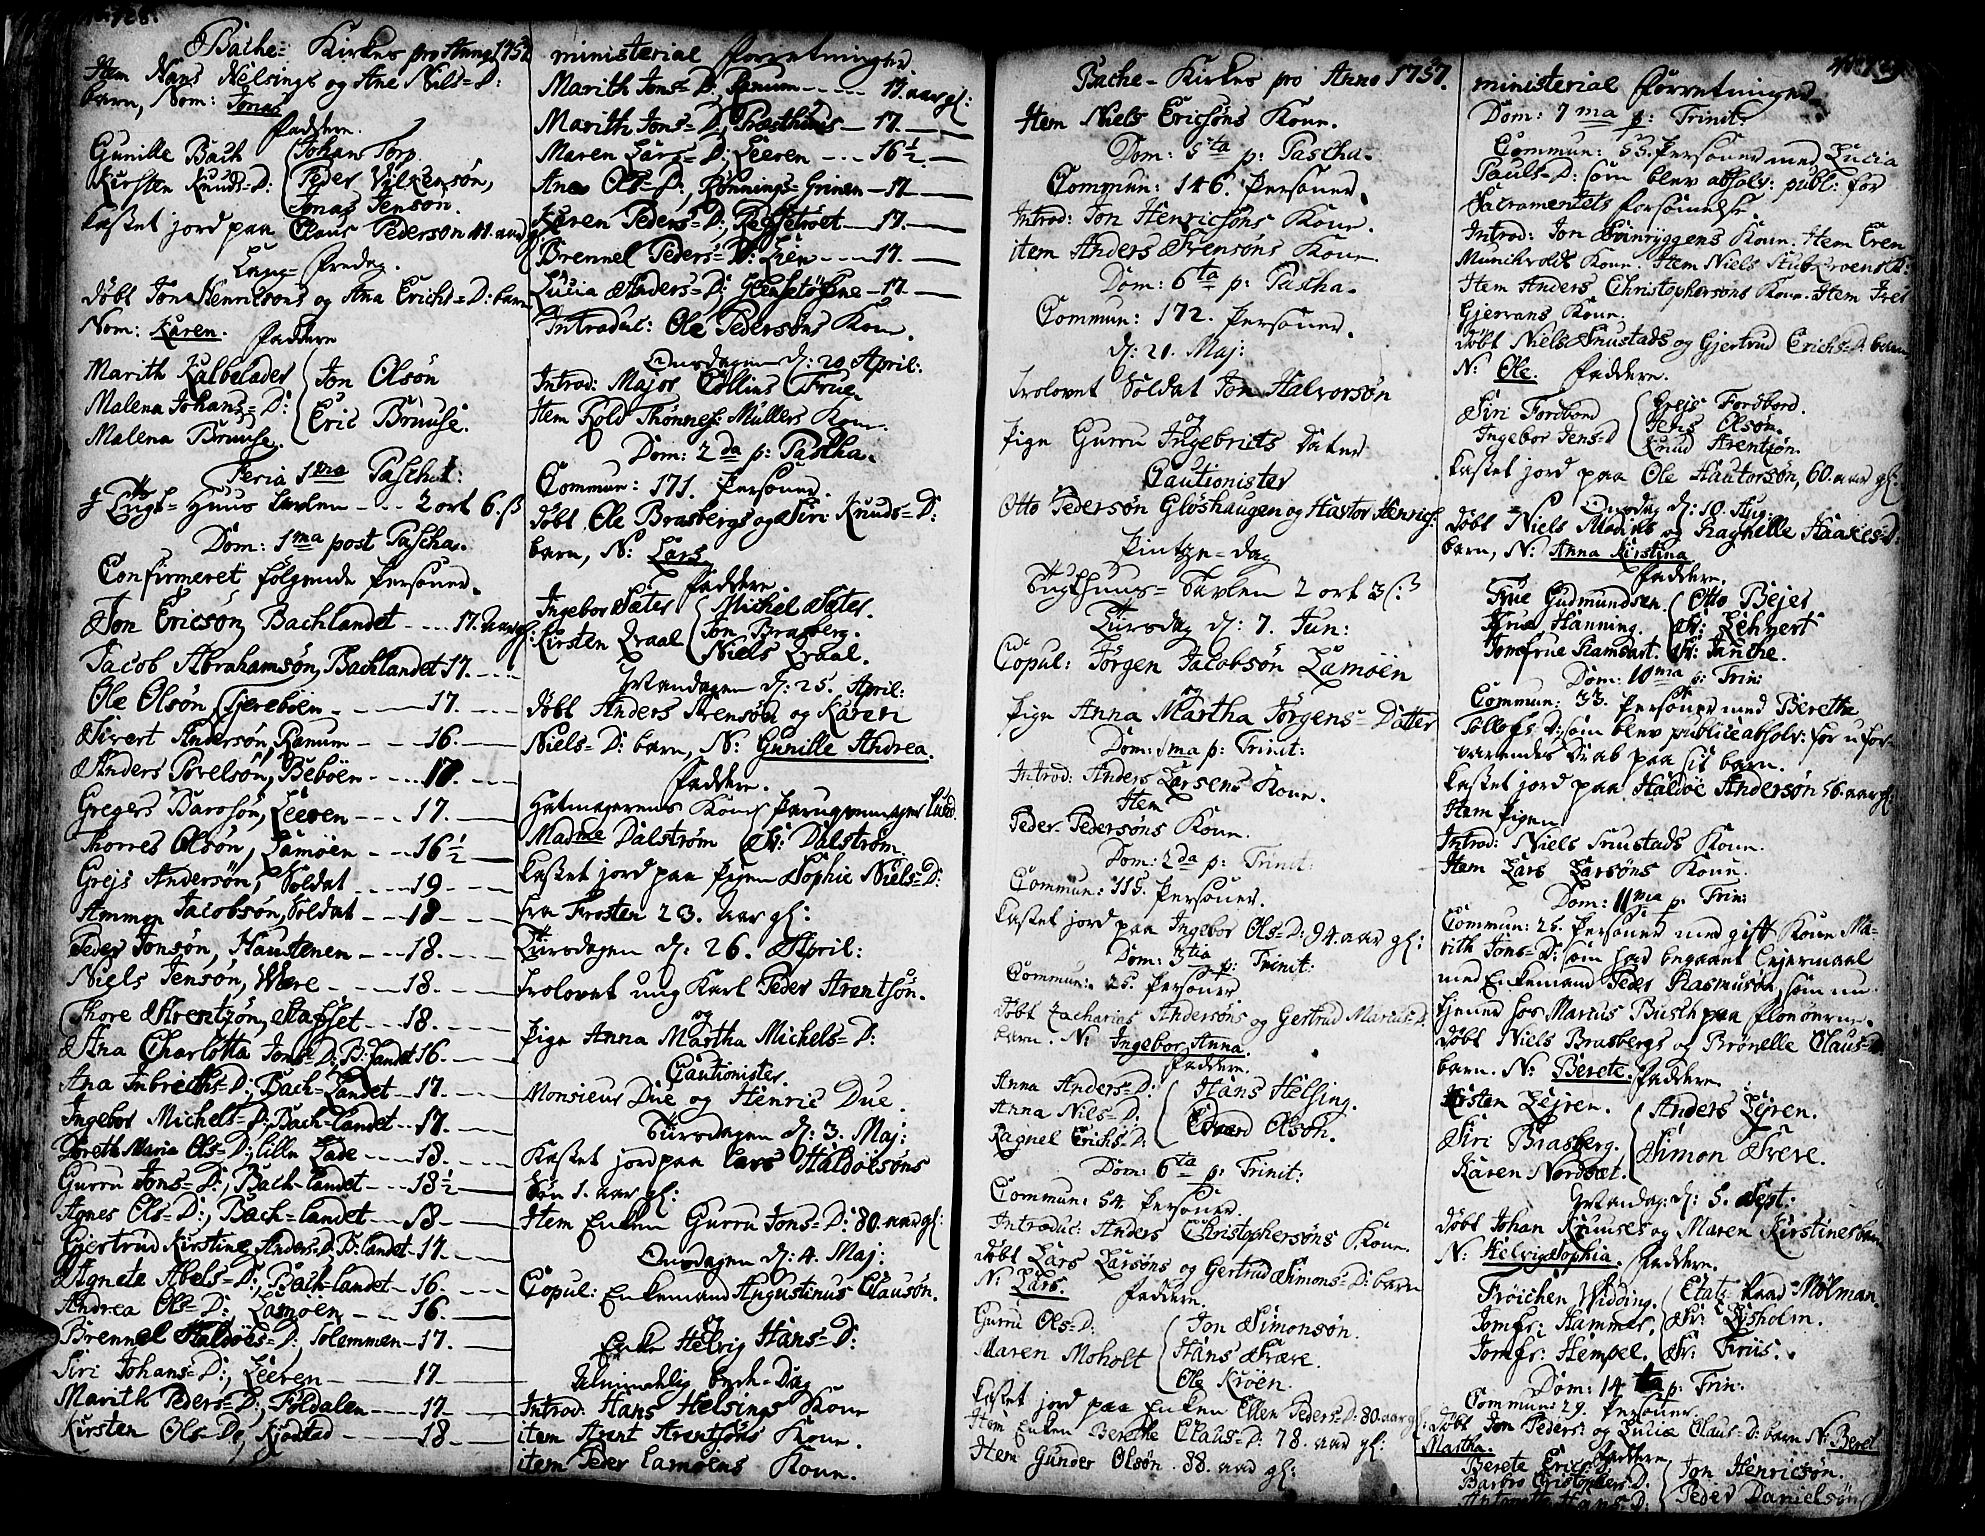 Bache- Kirkes pro Anno 1757
Item Hans Helsings og Ane Niels-D:
barn, Nom: Jonas
Faddere.
Gunille Bach Johan Torp
Kirsten Knuds-D: Peder Vilkensøn,
Jonas Jenson.
Kastet jord paa Claus Pederson 41. aar
Lang- Fredag.
døbt Jon Henricsons og Ana Erichs-D: barn
Nom: Karen. Faddere
Marith Kalbelader Jon Olsøn
Malena Johans-D: Eric Bruuse.
Malena Bruuse.
Feria 1ma Paschat:
Tugt-Huus tavlen - - - 2 ort 6. β
Dom: 1ma post Pascha.
Confirmeret følgende Personer.
Jon Ericson, Bachlandet - - - - 17. aar gl:
Jacob Abrahamsøn, Bachlandet 17. - - -
Ole Olsøn, Tjereböen - - - - 17. - - -
Sivert Andersøn, Ranum - - - 16. - - -
Anders Povelsøn, Beböen - - - 17. - - -
Gregers Barosøn, Leeren - - - 17. - - -
Thorres Olsøn, Lamöen - - - 16½ - - -
Grejs Andersøn, Soldat - - - 19 - - -
Ammon Jacobsøn, Soldat - - - 18 - - -
Peder Jonsøn, Haustenen - - - 18. - - -
Niels Jensøn, Være - - - 18. - - -
Thore Arentzøn, Stafset - - - 18. - - -
Ana Charlotta Jons-D; B: landet 16. - - -
Ana Inbrechts-D; Bach-Landet - 17. - - -
Ingebor Michels-D; Bach-landet - - 17. - - -
Doreth Maria Ols-D; lille Lade - - - 18. - - -
Gurru Jons-D:, Bach-landet - - - 18½ - - -
Agnes Ols-D:, Bach-landet - - - 18 - - -
Gjertrud Kirstine Anders-D. B: landet - 17. - - -
Agnete Abels-D:, Bach-landet - - - 16. - - -
Andrea Ols-D:, Lamöen - - - 16. - - -
Brennel Haldöes-D: Solemmen - 17. - - -
Siri Johans-D:, Leeren - - - 17 - - -
Marith Peders-D:, Foldalen - - - 17 - - -
Kirsten Ols-D:, Kjøstad - - - 18. - - -
ministerial Forretninger.
Marith Jons-D:, Ranum - - - - - 17. aar gl:
Marith Jons-D:, Præsthuus - 17. - - -
Maren Lars-D:, Leeren - - - 16½ - - -
Ana Ols-D:, Rønnings-Grinen - 17 - - -
Karen Peders-D:, - 17. - - -
Brennel Peders-D: Lien - - - 17. - - -
Lucia Anders-D:, - 17. - - -
Introduc: Ole Pedersøns Kone.
Onsdagen d: 20 April:
Introd: Major Collins Frue.
Item Rold Thønnes: Müllers Kone.
Dom: 2da p: Pascha.
Commun: 171. Personer.
døbt Ole Brasbergs og Siri Knuds-D:
barn, N: Lars.
Faddere.
Ingebor Sæter Michel Sæter.
Kirsten Kraal Jon Brasberg.
Niels Kraal.
Mandagen d: 25. April:
døbt Anders Arensøn og Karen
Niels-D: barn, N: Gunille Andrea.
Faddere.
Hatmagerens Kone Paruqvemager Lund.
Madme Dalstrøm Sr: Dalstrøm.
Kastet jord paa Pigen Sophie Niels-D:
fra Frosten 23. aar gl:
Tiirsdagen d: 26. April:
Trolovet ung Karl Peder Arentsøn.
og
Pige Anna Martha Michels-D:
Cautionister.
Monsieur Due og Henric Due.
Tirsdagen d: 3. Maj:
Kastet jord paa Lars Haldorsøns
søn 1. aar gl:
Item Enken Gurru Jons-D: 80. aar gl:
Onsdagen d: 4. Maj:
Copul: Enkemand Augustinus Clausøn.
og
Enke Helvig Hans-D:
Almindelig bede-Dag
Introd: Hans Helsings Kone
item Arent Arentsøns Kone.
item Peder Lamöens Kone.
Bache- Kirkes pro Anno 1757.
Item Niels Ericsöns Kone.
Dom: 5ta p: Pascha.
Commun: 146. Personer.
Introd: Jon Henricsöns Kone.
item Anders Arensøns Kone
Dom: 6ta p: Pascha.
Commun: 172. Personer.
d: 21. Maj:
Trolovet Soldat Jon Halvorsøn
og
Pige Gurru Ingebricts Datter
Cautionister
Otto Pedersøn Gløshaugen og Hastor Henrics:
Pintze-dag
Tugthuus-Tavlen 2 ort 3 β
Tiirsdag d: 7. Jun:
Copul: Jörgen Jacobsøn Lamöen
og
Pige Anna Martha Jörgens-Datter
Dom: 1ma p: Trinit:
Introd: Anders Larsens Kone.
Item
Peder Pedersöns Kone.
Dom: 2da p: Trinit:
Commun: 115. Personer.
Kastet jord paa Ingebor Ols-D: 94. aar gl:
Dom: 3tia p: Trinit:
Commun: 25. Personer
døbt Zacharias Andersøns og Gertrud Marcus-D:
barn. N: Ingebor Anna.
Faddere.
Anna Anders-D: Hans Helsing.
Anna Nils-D: Edvard Olson.
Ragnel Erichs-D:
Dom: 6ta p: Trinit:
Commun: 54. Personer.
Introduc: Anders Christophersøns Kone.
døbt Lars Larsøns og Gertrud Simons-D: barn
N: Lars. Faddere.
Gurru Ols-D: Jon Simonsøn.
Maren Moholt Hans Svære.
Ole Kroen.
Kastet jord paa Enken Ellen Peders-D: 80. aar gl:
Item Enken Berethe Claus-D: 78. aar gl:
Item Gunder Olsøn. 88. aar gl:
ministerial Forretninger.
Dom: 7ma p: Trinit:
Commun: 53. Personer med Lucia
Pauls-D: som blev absolv: publ: for
Sacramentets forsømelse
Introd: Jon Svinryggens Kone. Item Even
Munchvolds Kone. Item Niels
Item Anders Christophersøns Kone. Item Iver
Gjervans Kone.
døbt Niels Snustads og Gjertrud Erichs-D: barn
N: Ole. Faddere.
Siri Fordbord Grejs Fordbord.
Ingebor Jens-D Jens Olsøn.
Knud Arentzøn.
Kastet jord paa Ole Hautorsøn, 60. aar gl:
Onsdag d: 10. Aug:
døbt Niels Medins og Ragnille Haakes-D.
barn, N: Anna Kirstina
Faddere.
Frue Gudmundsen. Otto Bejer
Frue Hanning. Sr: Lehnert
Jomfrue Ramsart. Sr: Janche.
Dom: 10ma p: Trin:
Commun: 33. Personer med Berethe
Tollefs D: som blev publice absolv: for ufor-
varendes Drab paa sit barn.
Kastet jord paa Haldoe Andersøn 56. aar gl:
Item Pigen
Introd: Niels Snustads Kone.
Item Lars Larsøns Kone.
Dom: 11ma p: Trin:
Commun: 26. Personer med gift Kone Ma-
rith Jons-D: som had begaaet Lejermaal
med Enkemand Peder Rasmusøn, som nu
tjener hos Marcus Busch paa
døbt Niels Brasbergs og Brønelle Claus-D
barn. N: Berete. Faddere.
Kirsten Lejren. Anders Lejren.
Siri Brasberg. Simon Svere.
Karen Nordsæt.
Mandag d: 5. Sept:
døbt Johan Knuses og Maren Kirstines barn
N: Helvig Sophia. Faddere.
Frøichen Widding. Etatz Raad Mölman.
Jomfr: Hammer, Sr: Lysholm.
Jomfr: Hempel. Sr: Friis.
Dom: 14ta p: Trin.
Commun: 29. Personer.
døbt Jon Peders: og Lucia Claus-D: barn N: Beret
Martha. Faddere
Berete Erics-D: Jon Henricsøn.
Barbro Cristophers-D: Peder Danielsøn